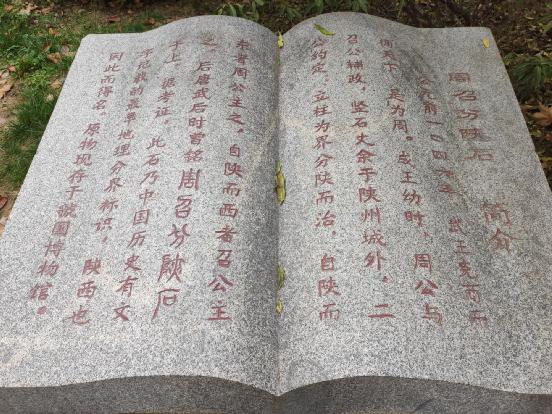 周召分陕石 简介
公元前一〇四六年 武王克商而
有天下 是为周。成王幼时，周公与
召公辅政，竖石丈余于陕州城外，二
公约定，立柱为界分陕而治。自陕而
东者周公主之，自陕而西者召公主
之，后唐武后时曾铭周召分陕石
于上，据考证，此石乃中国历史有文
字记载的最早地理分界标识，陕西也
因此而得名。原物现存于虢国博物馆。